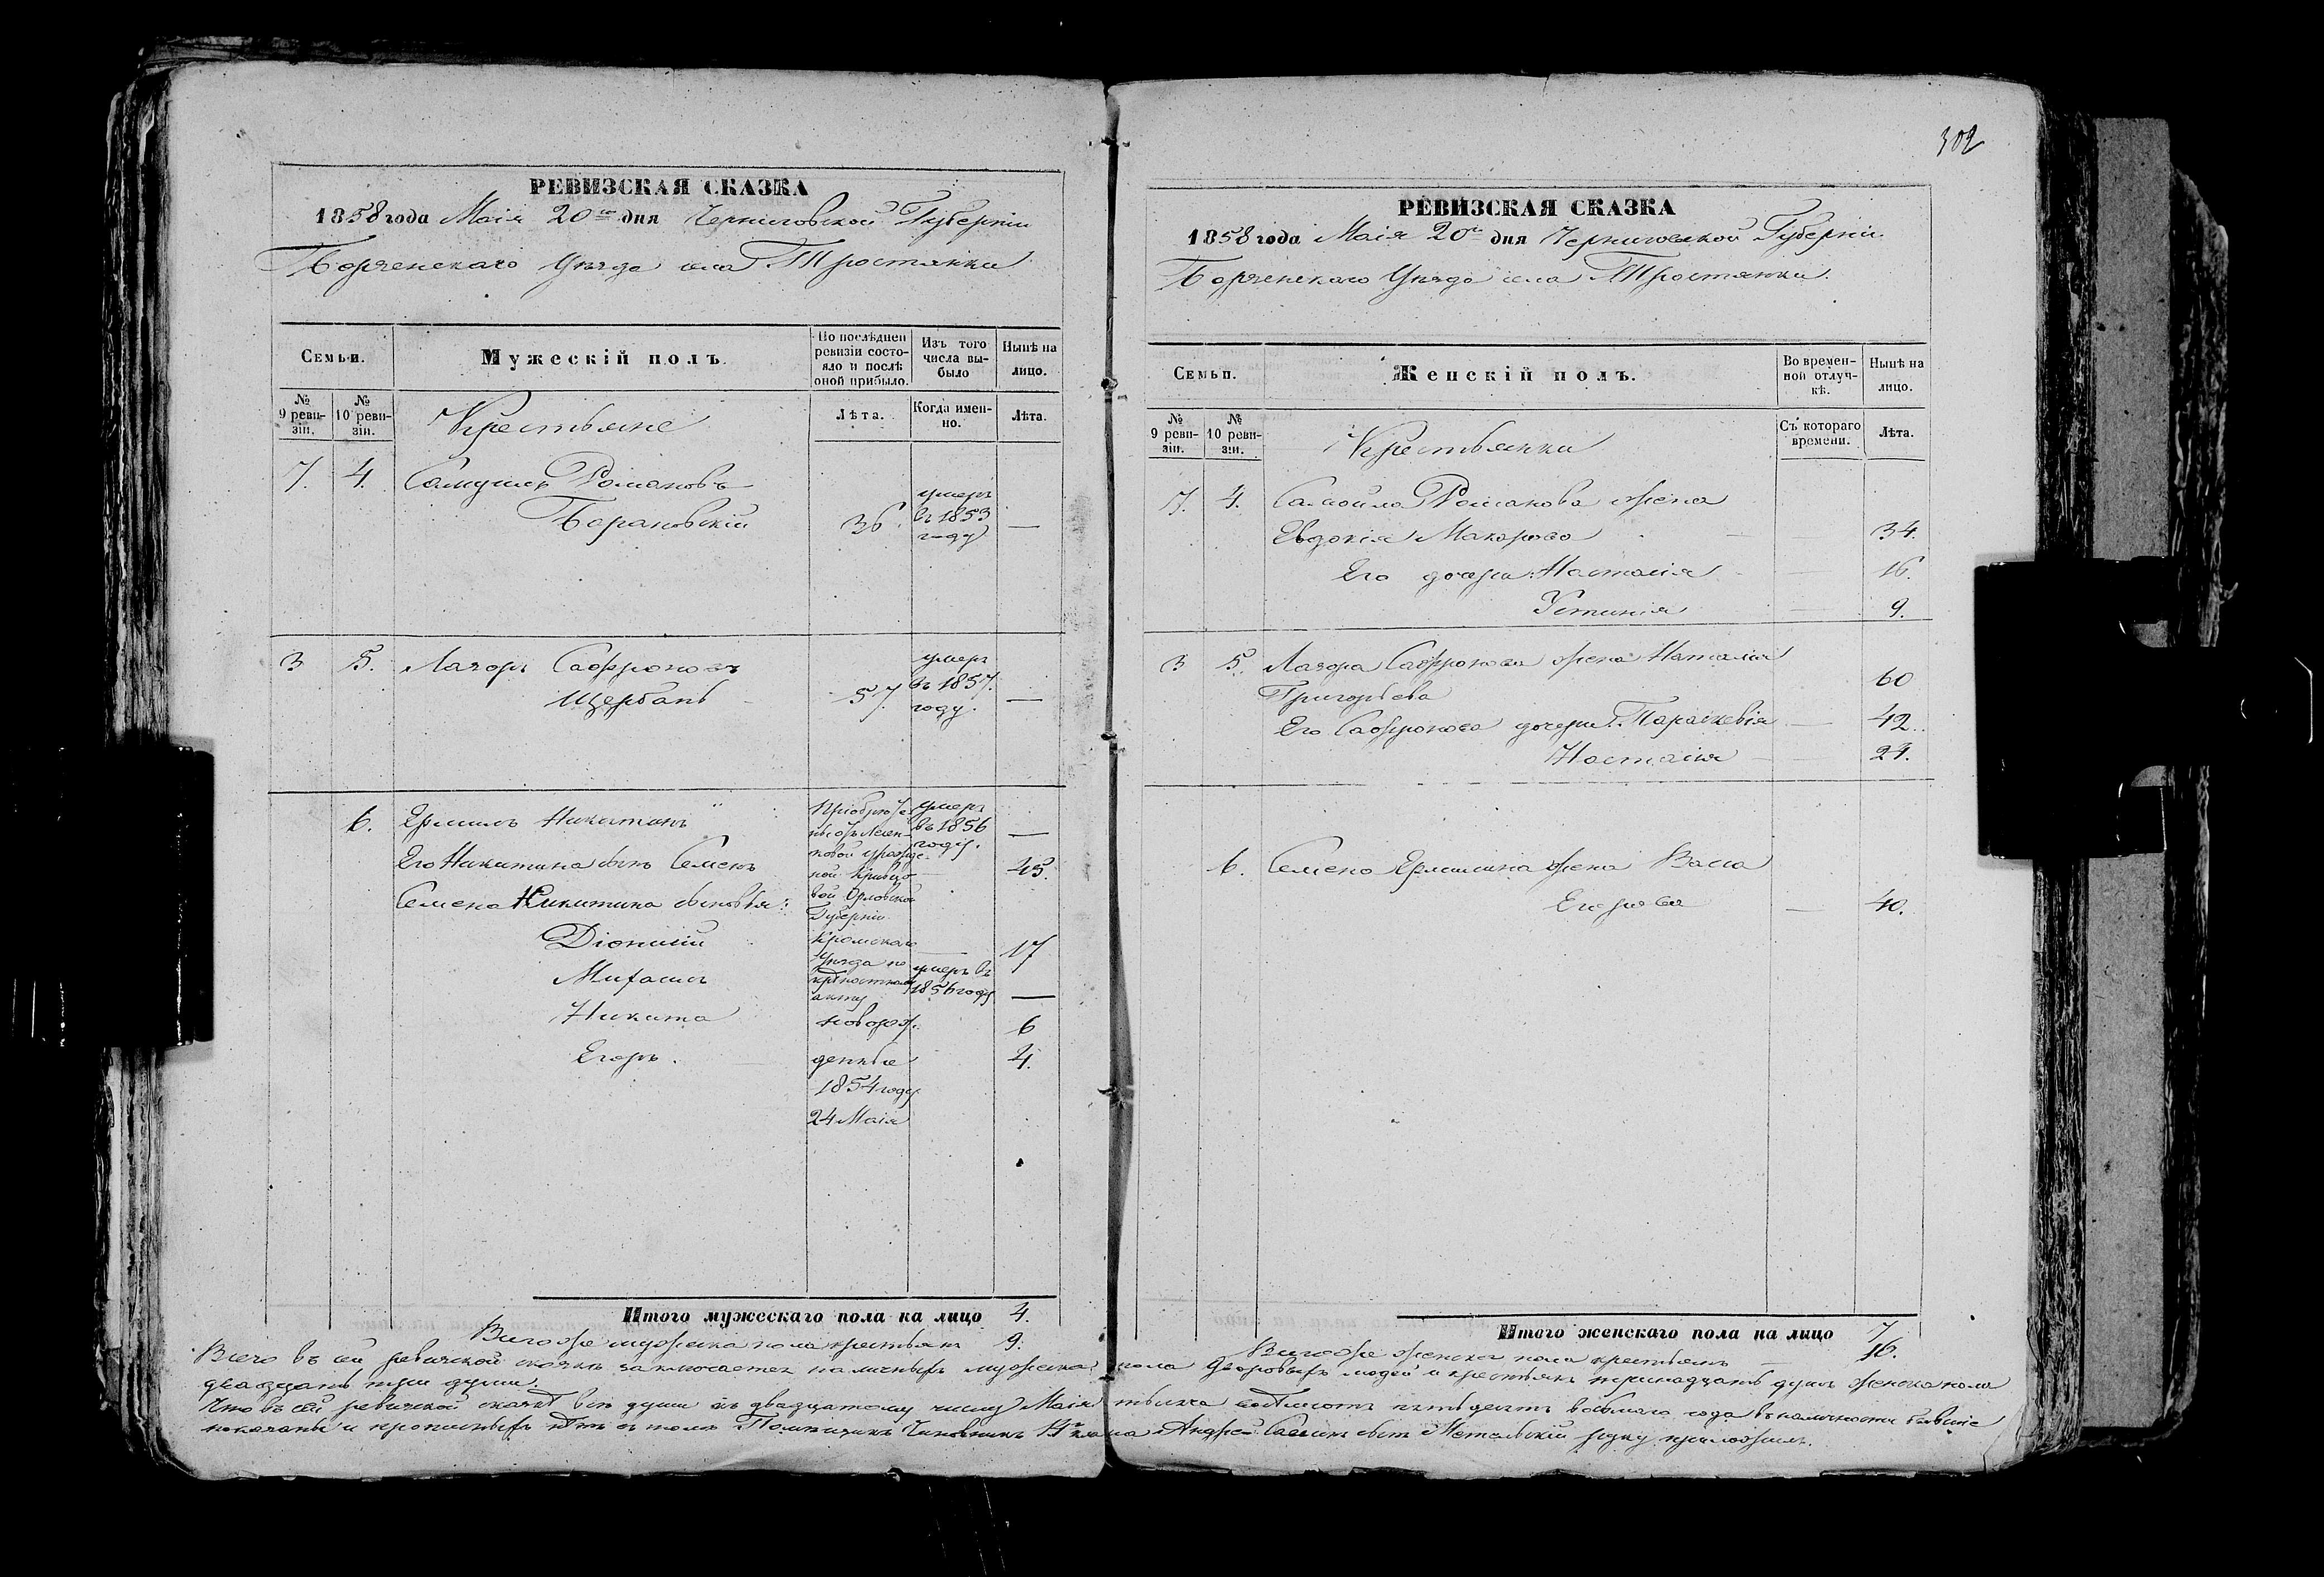 302
РЕВИЗСКАЯ СКАЗКА
1858 года Маія 20го дня Черниговской Губерніи
Борзенскаго Уѣзда села Тростянки
Семьи.
Мужескій полъ.
По послѣдней ревизіи состояло и послѣ оной прибыло.
Изъ того числа выбыло
Нынѣ на лицо.
№ 9 ревизіи.
№ 10 ревизіи.
Крестьяне
Лѣта.
Когда именно.
Лѣта.
7. 4. Самуилъ Романовъ
Барановскій 36. умеръ въ 1853 году —
3 5. Лазорь Сафроновъ
Щербань 57 умеръ въ 1857. году. —
6. Ермилъ Никитинъ умеръ въ 1856 году. —
Его Никитина сынъ Семенъ 45.
Семена Никитина сыновья:
Діонисій 17
Михаилъ умеръ въ 1856 году —
Никита 6
Егоръ. 4.
вой Орловской
Губерніи
Кромскаго
Уѣзда по
крѣпостному
акту
новорож.
денные
1854 году
24 Маія
Итого мужескаго пола на лицо 4.
Вигоже мужеска пола крестьянъ 9.
РЕВИЗСКАЯ СКАЗКА
1858 года Маія 20го дня Черниговской Губерніи.
Борзенскаго Уѣзда села Тростянки.
Семьи.
Женскій полъ.
Во временной отлучкѣ.
Нынѣ на лицо.
№ 9 ревизіи.
№ 10 ревизіи.
Крестьянки
Съ котораго времени.
Лѣта.
7. 4. Самойла Романова жена
Евдокія Макарова — 34.
Его дочери: Настасія — 16.
Устинія — 9.
3 5. Лазора Сафронова жена Наталія
Григорьева 60
Его Сафронова дочери: Параскевія — 42.
Настасія — 24.
6. Семена Ермилина жена Васа
Егорова — 40.
Итого женскаго пола на лицо 7
Вигоже женска пола крестьянъ — 16.
Всего въ сей ревизской сказкѣ заключается наличныхъ мужеска пола дворовыхъ людей и крестьянъ тринадцать душъ женска пола
двадцать три души.
Что въ сей ревизской сказкѣ всѣ души къ двадцатому числу Маія тысяча восемьсотъ пятьдесятъ восьмаго года въ наличности бывшіе
показаны и прописныхъ нѣтъ въ томъ Помѣщикъ Чиновникъ Андрей сынъ руку приложилъ.